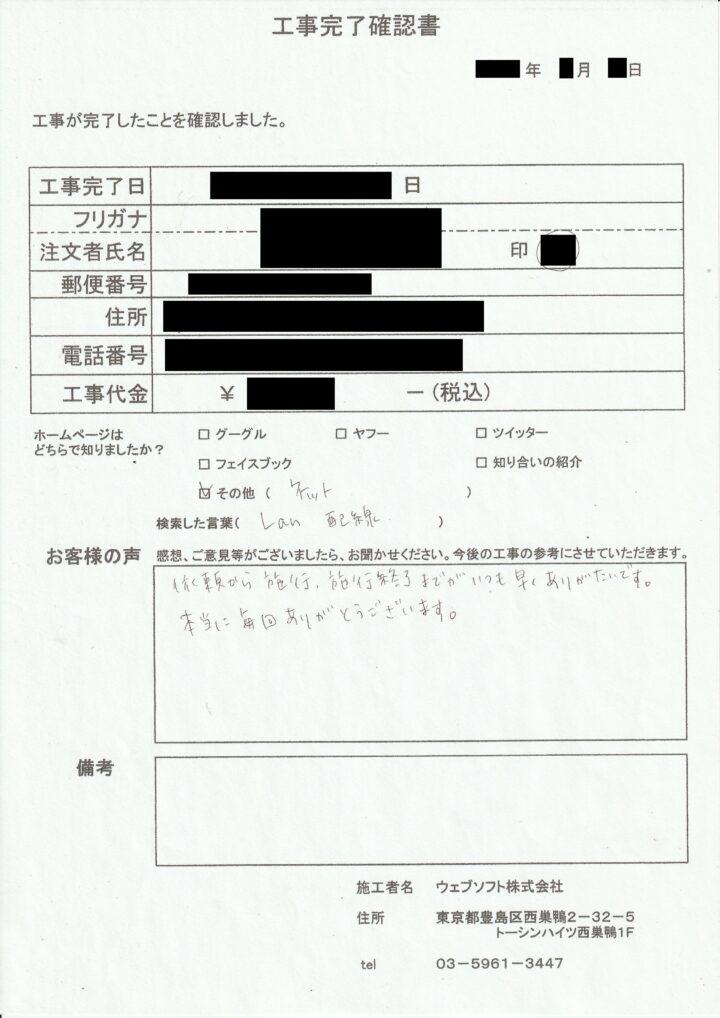 工事完了確認書
年 月 日
工事が完了したことを確認しました。
工事完了日 日
フリガナ
注文者氏名 印
郵便番号
住所
電話番号
工事代金 ¥ ー(税込)
ホームページは
どちらで知りましたか？
□ グーグル □ ヤフー □ ツイッター
□ フェイスブック □ 知り合いの紹介
☑ その他 ( ネット )
検索した言葉( Lan 配線 )
お客様の声 感想、ご意見等がございましたら、お聞かせください。今後の工事の参考にさせていただきます。
依頼から施行、施行終了までがいつも早くありがたいです。
本当に毎回ありがとうございます。
備考
施工者名 ウェブソフト株式会社
住所 東京都豊島区西巣鴨2－32－5
トーシンハイツ西巣鴨1F
tel 03－5961－3447